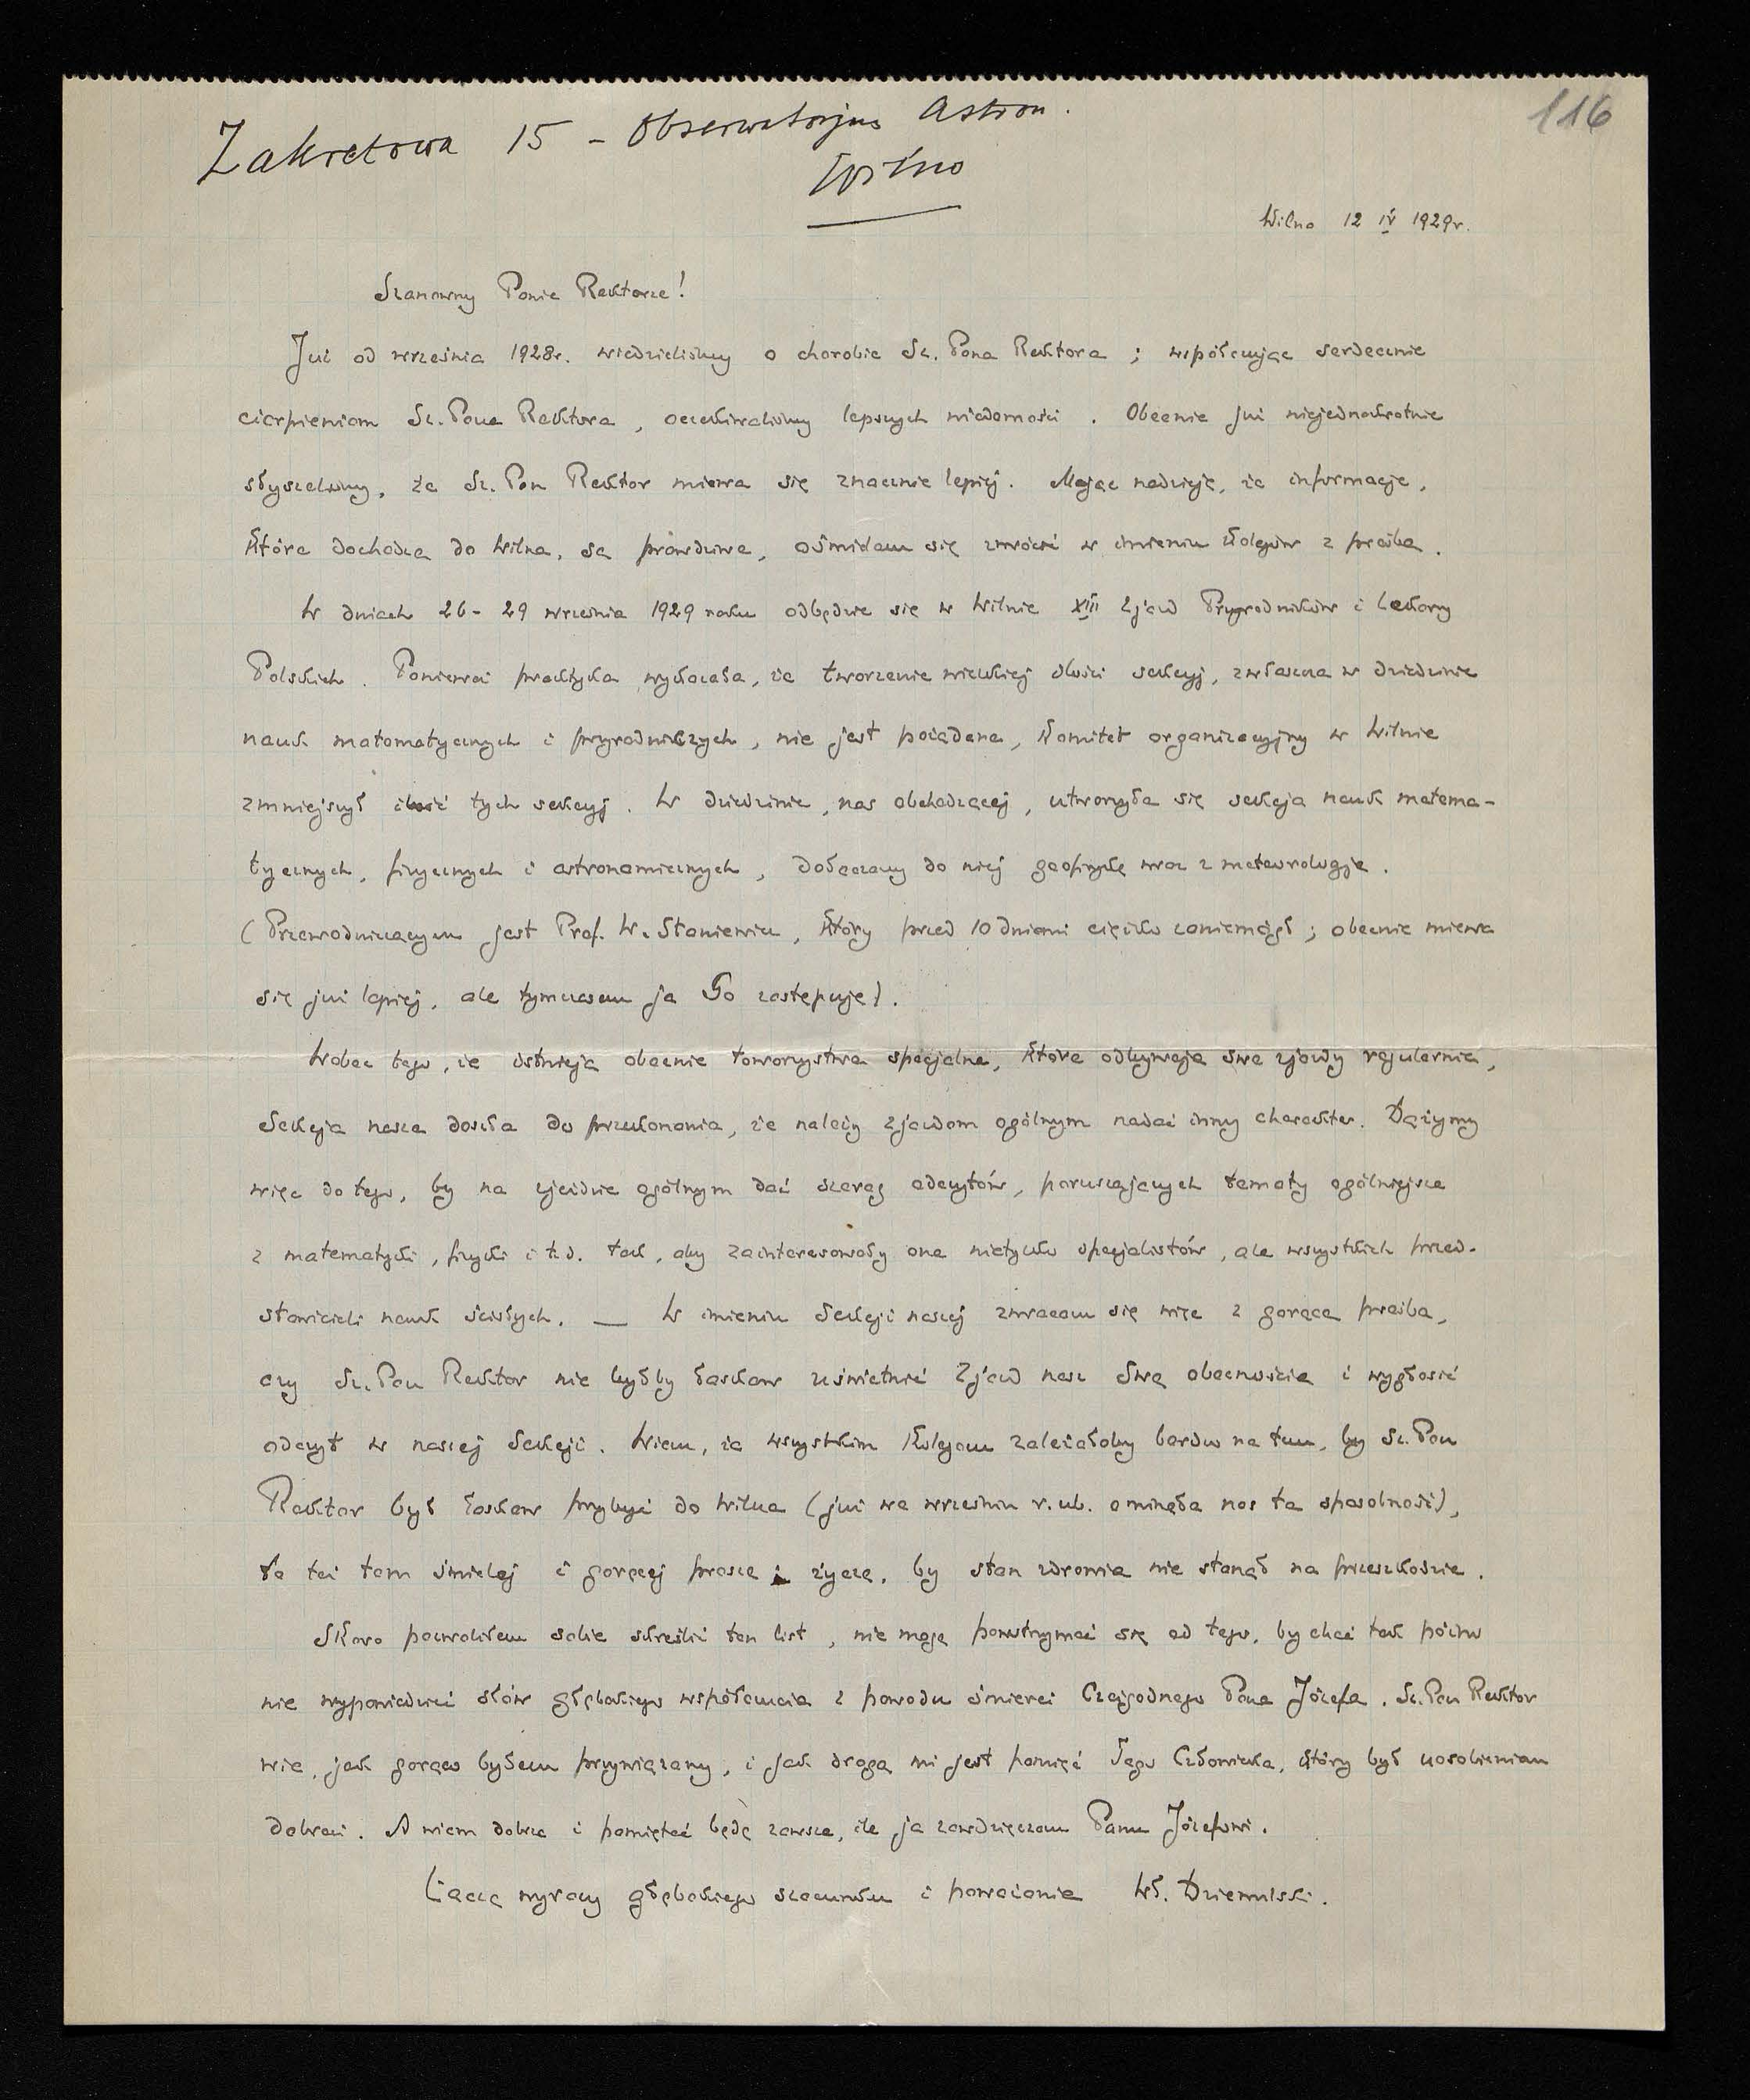 116
Zakretowa 15 – Obserwatorjum Astron.
Wilno
Wilno 12 IV 1929 r.
Szanowny Panie Rektorze!
Już od września 1928 r. wiedzieliśmy o chorobie Sz. Pana Rektora ; współczując serdecznie
cierpieniom Sz. Pana Rektora , oczekiwaliśmy lepszych wiadomości . Obecnie już niejednokrotnie
słyszeliśmy, że Sz. Pan Rektor miewa się znacznie lepiej. Mając nadzieję, że informacje,
które dochodzą do Wilna, są prawdziwe, ośmielam się zwrócić w imieniu kolegów z prośbą.
W dniach 26 - 29 września 1929 roku odbędzie się w Wilnie XIII Zjazd Przyrodników i Lekarzy
Polskich. Ponieważ praktyka wykazała, że tworzenie wielkiej ilości sekcyj, zwłaszcza w dziedzinie
nauk matematycznych i przyrodniczych, nie jest pożądane, Komitet organizacyjny w Wilnie
zmniejszył ilość tych sekcyj. W dziedzinie, nas obchodzącej, utworzyła się sekcja nauk matema-
tycznych, fizycznych i astronomicznych, dołączamy do niej geofizykę wraz z meteorologją.
(Przewodniczącym jest Prof. W. Staniewicz, który przed 10 dniami ciężko zaniemógł ; obecnie miewa
się już lepiej, ale tymczasem ja Go zastępuję).
Wobec tego, że istnieją obecnie towarzystwa specjalne, które odbywają swe zjazdy regularnie,
Sekcja nasza doszła do przekonania, że należy zjazdom ogólnym nadać inny charakter. Dążymy
więc do tego, by na zjeździe ogólnym dać szereg odczytów, poruszających tematy ogólniejsze
z matematyki, fizyki i t.d. tak, aby zainteresowały one nietylko specjalistów, ale wszystkich przed-
stawicieli nauk ścisłych. — W imieniu Sekcji naszej zwracam się więc z gorącą prośbą,
czy Sz. Pan Rektor nie byłby łaskaw uświetnić Zjazd nasz Swą obecnością i wygłosić
odczyt w naszej Sekcji. Wiem, że wszystkim Kolegom zależałoby bardzo na tem, by Sz. Pan
Rektor był łaskaw przybyć do Wilna (już we wrześniu r. ub. ominęła nas ta sposobność),
to też tem śmielej i goręcej proszę i życzę, by stan zdrowia nie stanął na przeszkodzie.
Skoro pozwoliłem sobie skreślić ten list, nie mogę powstrzymać się od tego, by choć tak późno
nie wypowiedzieć słów głębokiego współczucia z powodu śmierci Czcigodnego Pana Józefa. Sz. Pan Rektor
wie, jak gorąco byłem przywiązany, i jak drogą mi jest pamięć Tego Człowieka, który był uosobieniem
dobroci. A wiem dobrze i pamiętać będę zawsze, ile ja zawdzięczam Panu Józefowi.
Łączę wyrazy głębokiego szacunku i poważania Wł. Dziewulski.